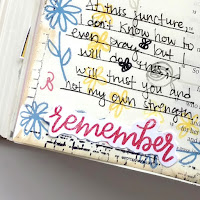 At this juncture,
I don't know how to
even pray but I
will do this: I
will trust you and
not my own strength
remember